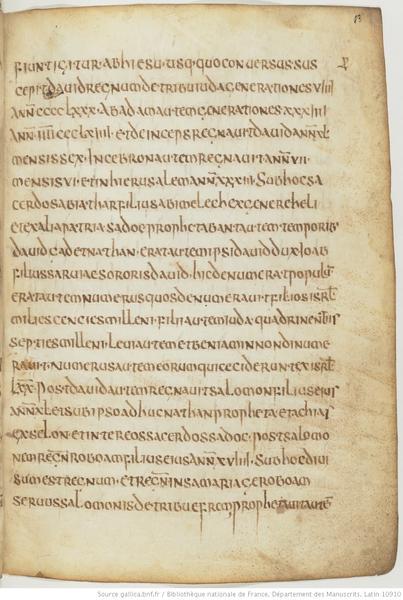 13
fiunt igitur ab hiesu usq quo conuersus sus
cepit dauid regnum de tribu iuda generationes viiii
ann cccclxxx ab adam autem generationes xxxiii
ann iiii cclxiiii et deinceps regnauit dauid ann xl
mensis sex in cebron autem regnauit ann vii
mensis vi et in hierusalem ann xxxiii sub hoc sa
cerdos abiathar filius abimelech ex genere heli
et ex alia patria sadoc prophetabant autem temporib
dauid gad et nathan erat autem ipsi dauid dux ioab
filius saruiae sororis dauid hic denumerat populum
erat autem numerus quos denumerauit filios isrl
milies cencies milleni filii autem iuda quadrinentis
septies milleni leui autem et beniamin non dinume
rauit numerus autem eorum qui ceciderunt ex isrl
lxx post dauid autem regnauit salomon filius eius
ann xl et sub ipso adhuc nathan propheta et achias
ex selon et inter eos sacerdos sadoc post salomo
nem regn roboam filius eius ann xviii sub hoc diui
sum est regnum et regn in samaria geroboam
seruus salomonis de tribu efrem
Source gallica.bnf.fr / Bibliothèque nationale de France, Département des Manuscrits, Latin 10910